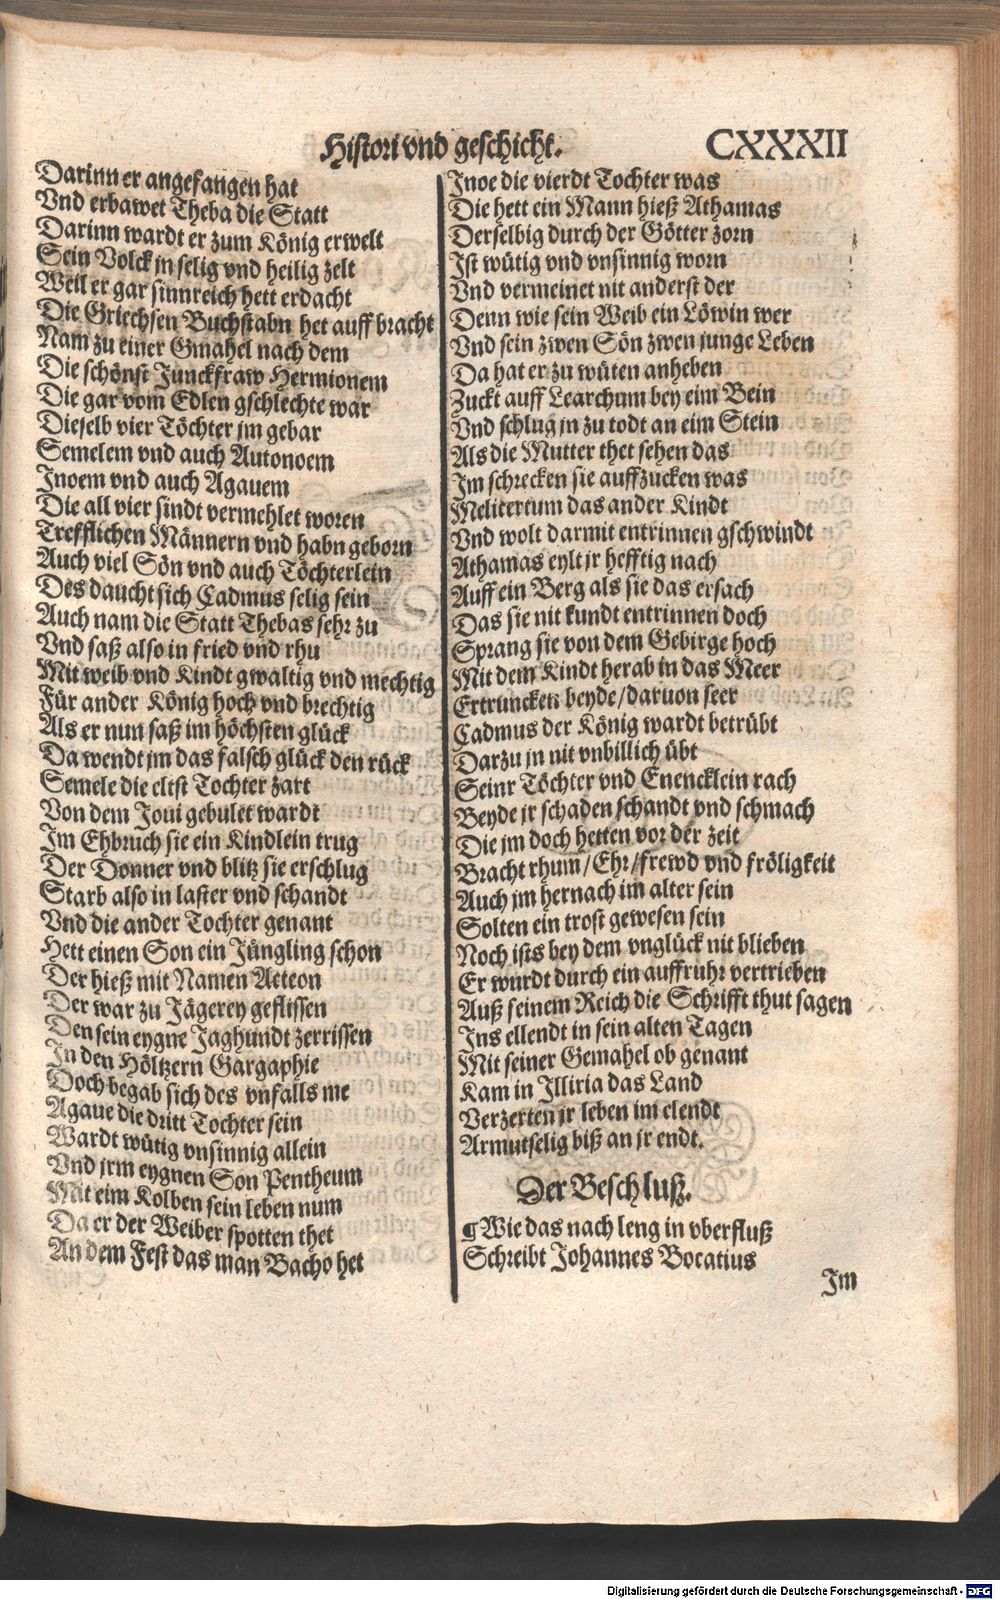 Histori vnd geschicht.
CXXXII
Darinn er angefangen hat
Vnd erbawet Theba die Statt
Darinn wardt er zum König erwelt
Sein Volck jn selig vnd heilig zelt
Weil er gar sinnreich hett erdacht
Die Griechsen Buchstabn het auff bracht
Nam zu einer Gmahel nach dem
Die schönst Junckfraw Hermionem
Die gar vom Edlen gschlechte war
Dieselb vier Töchter jm gebar
Semelem vnd auch Autonoem
Jnoem vnd auch Agauem
Die all vier sindt vermehlet woren
Trefflichen Männern vnd habn geborn
Auch viel Sön vnd auch Töchterlein
Des daucht sich Cadmus selig sein
Auch nam die Statt Thebas sehr zu
Vnd saß also in fried vnd rhu
Mit weib vnd Kindt gwaltig vnd mechtig
Für ander König hoch vnd brechtig
Als er nun saß im höchsten glück
Da wendt jm das falsch glück den rück
Semele die eltst Tochter zart
Von dem Joui gebulet wardt
Im Ehbruch sie ein Kindlein trug
Der Donner vnd blitz sie erschlug
Starb also in laster vnd schandt
Vnd die ander Tochter genant
Hett einen Son ein Jüngling schon
Der hieß mit Namen Acteon
Der war zu Jägerey geflissen
Den sein eygne Jaghundt zerrissen
In den Höltzern Gargaphie
Doch begab sich des vnfalls me
Agaue die dritt Tochter sein
Wardt wütig vnsinnig allein
Vnd jrm eygnen Son Pentheum
Mit eim Kolben sein leben num
Da er der Weiber spotten thet
An dem Fest das man Bacho het
Jnoe die vierdt Tochter was
Die hett ein Mann hieß Athamas
Derselbig durch der Götter zorn
Ist wütig vnd vnsinnig worn
Vnd vermeinet nit anderst der
Denn wie sein Weib ein Löwin wer
Vnd sein zwen Sön zwen junge Leben
Da hat er zu wüten anheben
Zuckt auff Learchum bey eim Bein
Vnd schlug jn zu todt an eim Stein
Als die Mutter thet sehen das
Im schrecken sie auffzucken was
Melitertum das ander Kindt
Vnd wolt darmit entrinnen gschwindt
Athamas eylt jr hefftig nach
Auff ein Berg als sie das ersach
Das sie nit kundt entrinnen doch
Sprang sie von dem Gebirge hoch
Mit dem Kindt herab in das Meer
Ertruncken beyde/daruon seer
Cadmus der König wardt betrübt
Darzu jn nit vnbillich übt
Seinr Töchter vnd Enencklein rach
Beyde jr schaden schandt vnd schmach
Die jm doch hetten vor der zeit
Bracht rhum/Ehr/frewd vnd fröligkeit
Auch jm hernach im alter sein
Solten ein trost gewesen sein
Noch ists bey dem vnglück nit blieben
Er wurdt durch ein auffruhr vertrieben
Auß seinem Reich die Schrifft thut sagen
Ins ellendt in sein alten Tagen
Mit seiner Gemahel ob genant
Kam in Illiria das Land
Verzerten jr leben im elendt
Armutselig biß an jr endt.
Der Beschluß.
¶ Wie das nach leng in vberfluß
Schreibt Johannes Bocatius
Im
Digitalisierung gefördert durch die Deutsche Forschungsgemeinschaft - DFG